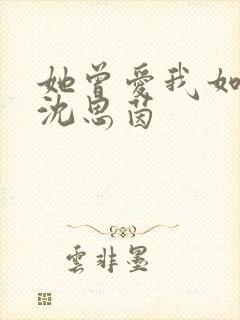 她曾愛我如
沈思茵
雲非墨